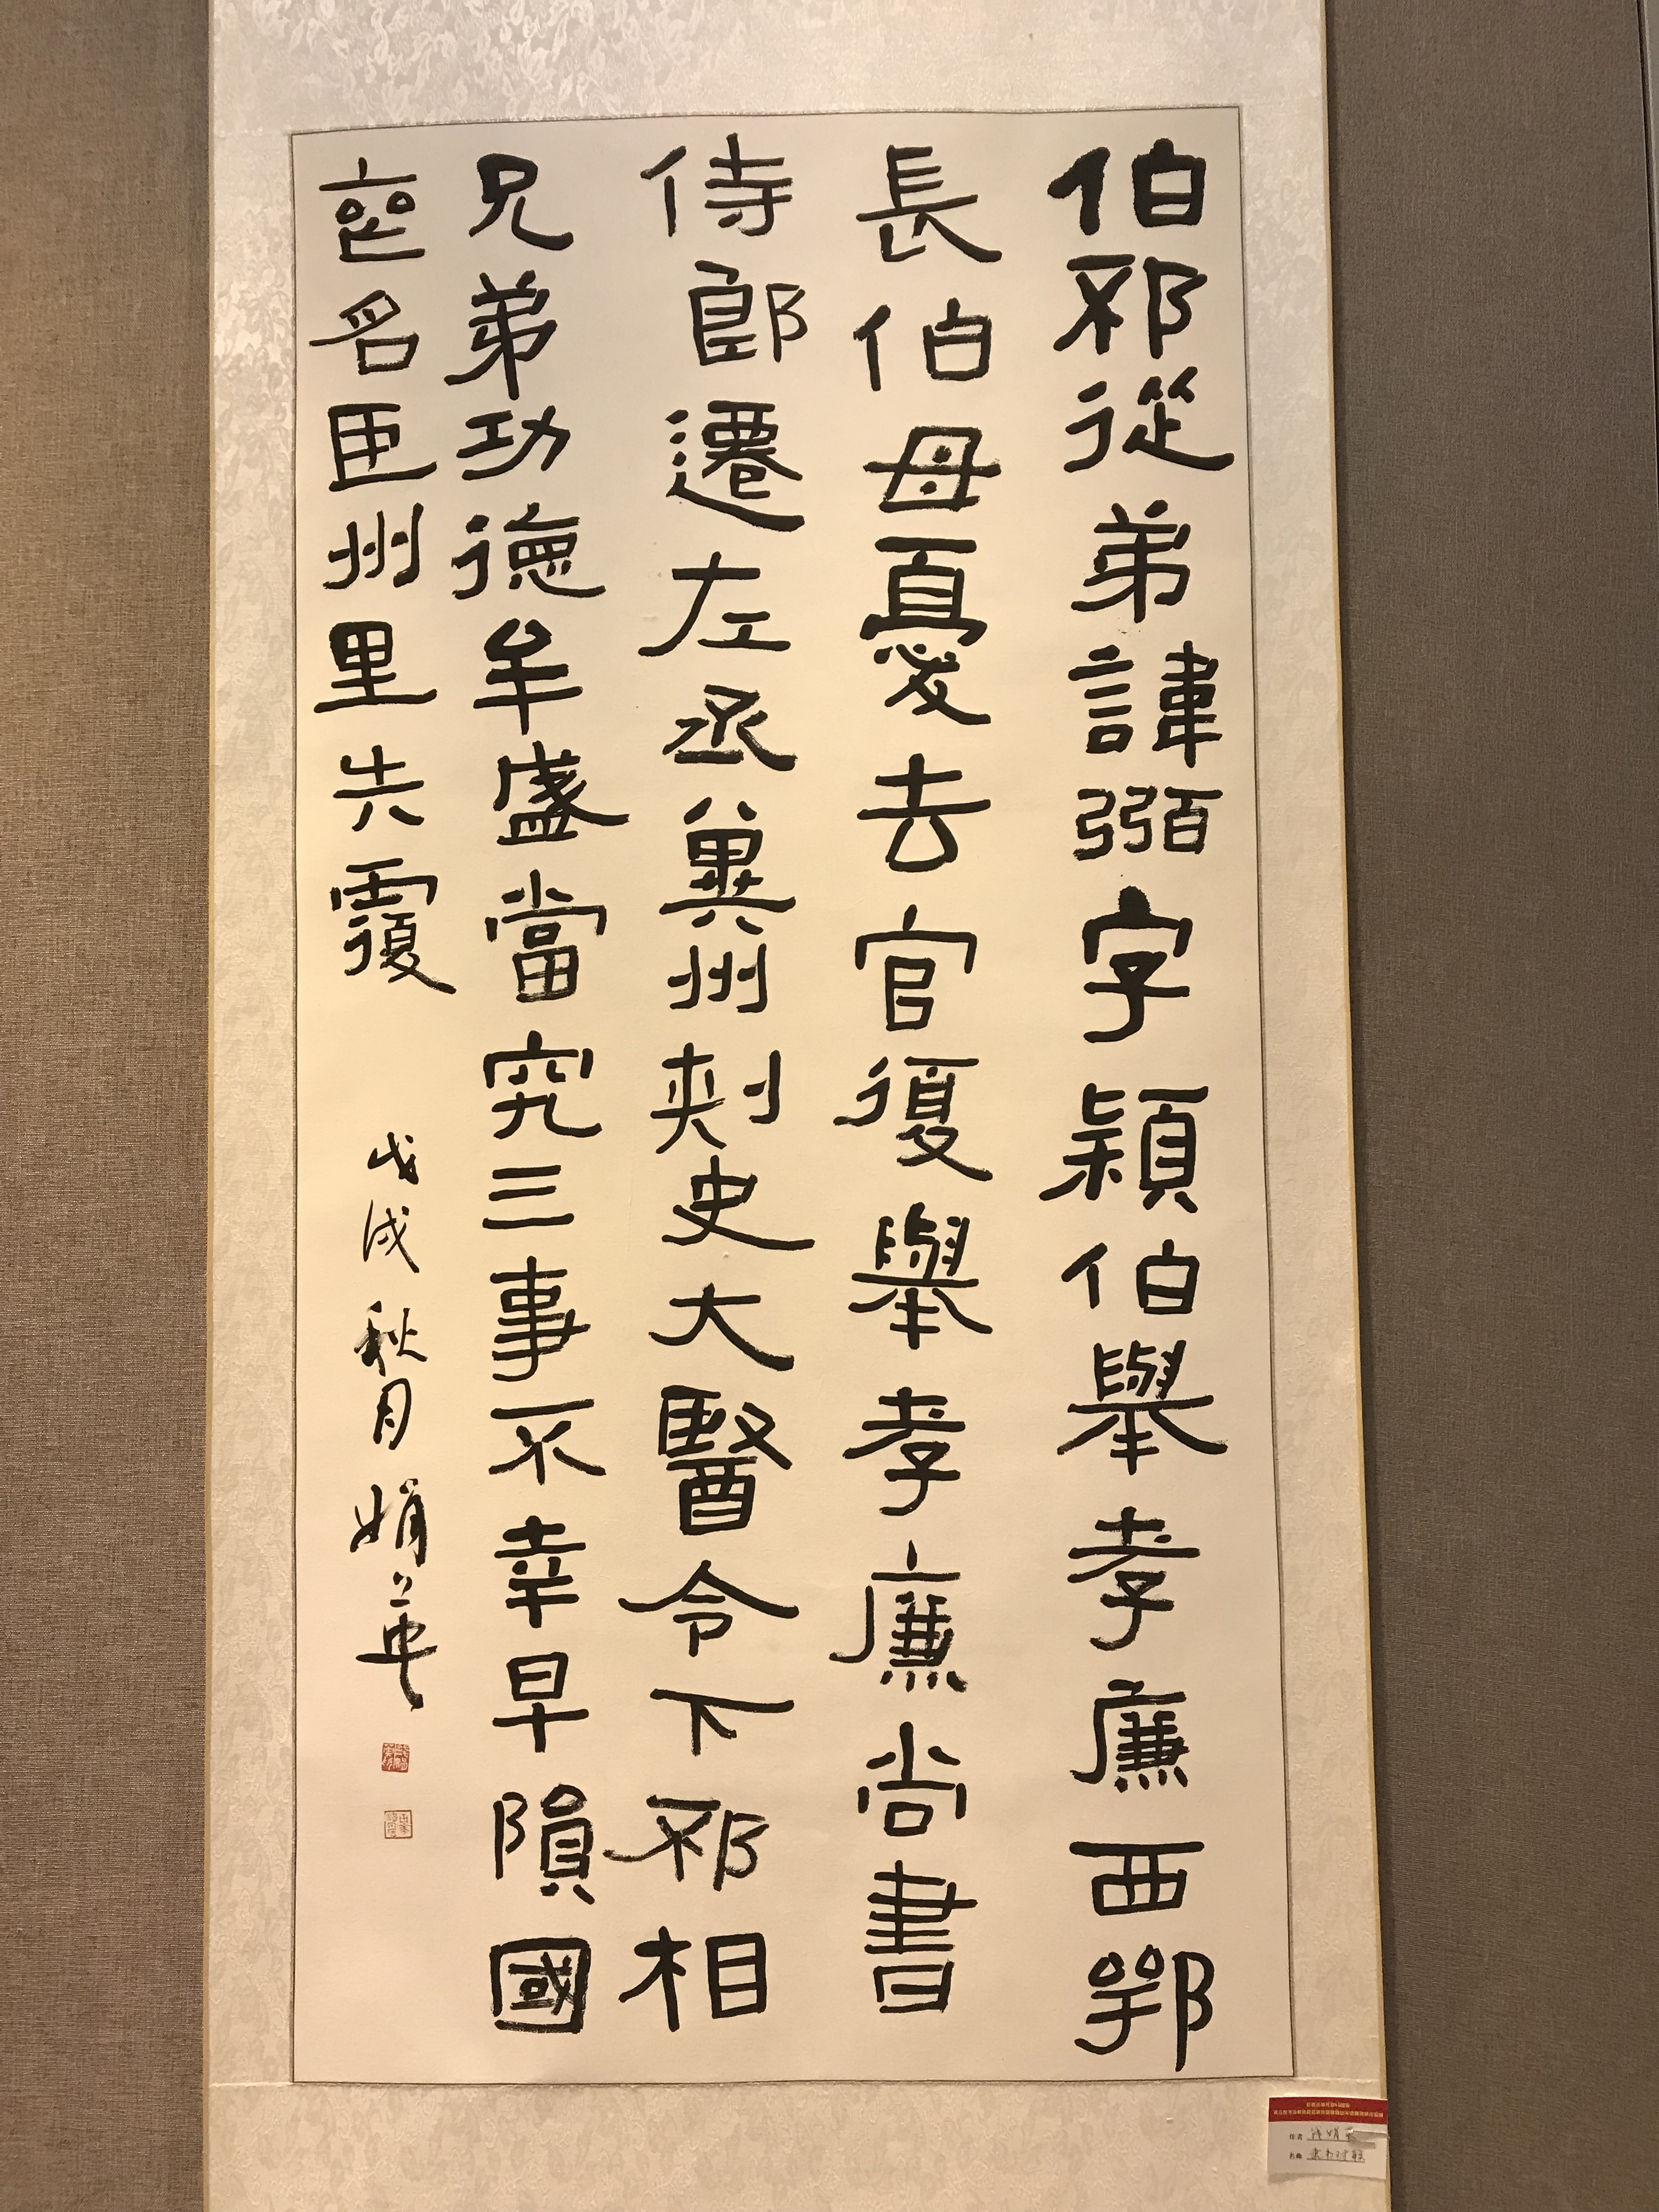 伯邳從弟諱弼字穎伯舉孝廉西鄂
長伯母憂去官復舉孝廉尚書
侍郎遷左丞冀州刺史大醫令下邳相
兄弟功德牟盛當究三事不幸早隕國
喪名臣州里失覆
戊戌秋月娟英
作者
名称